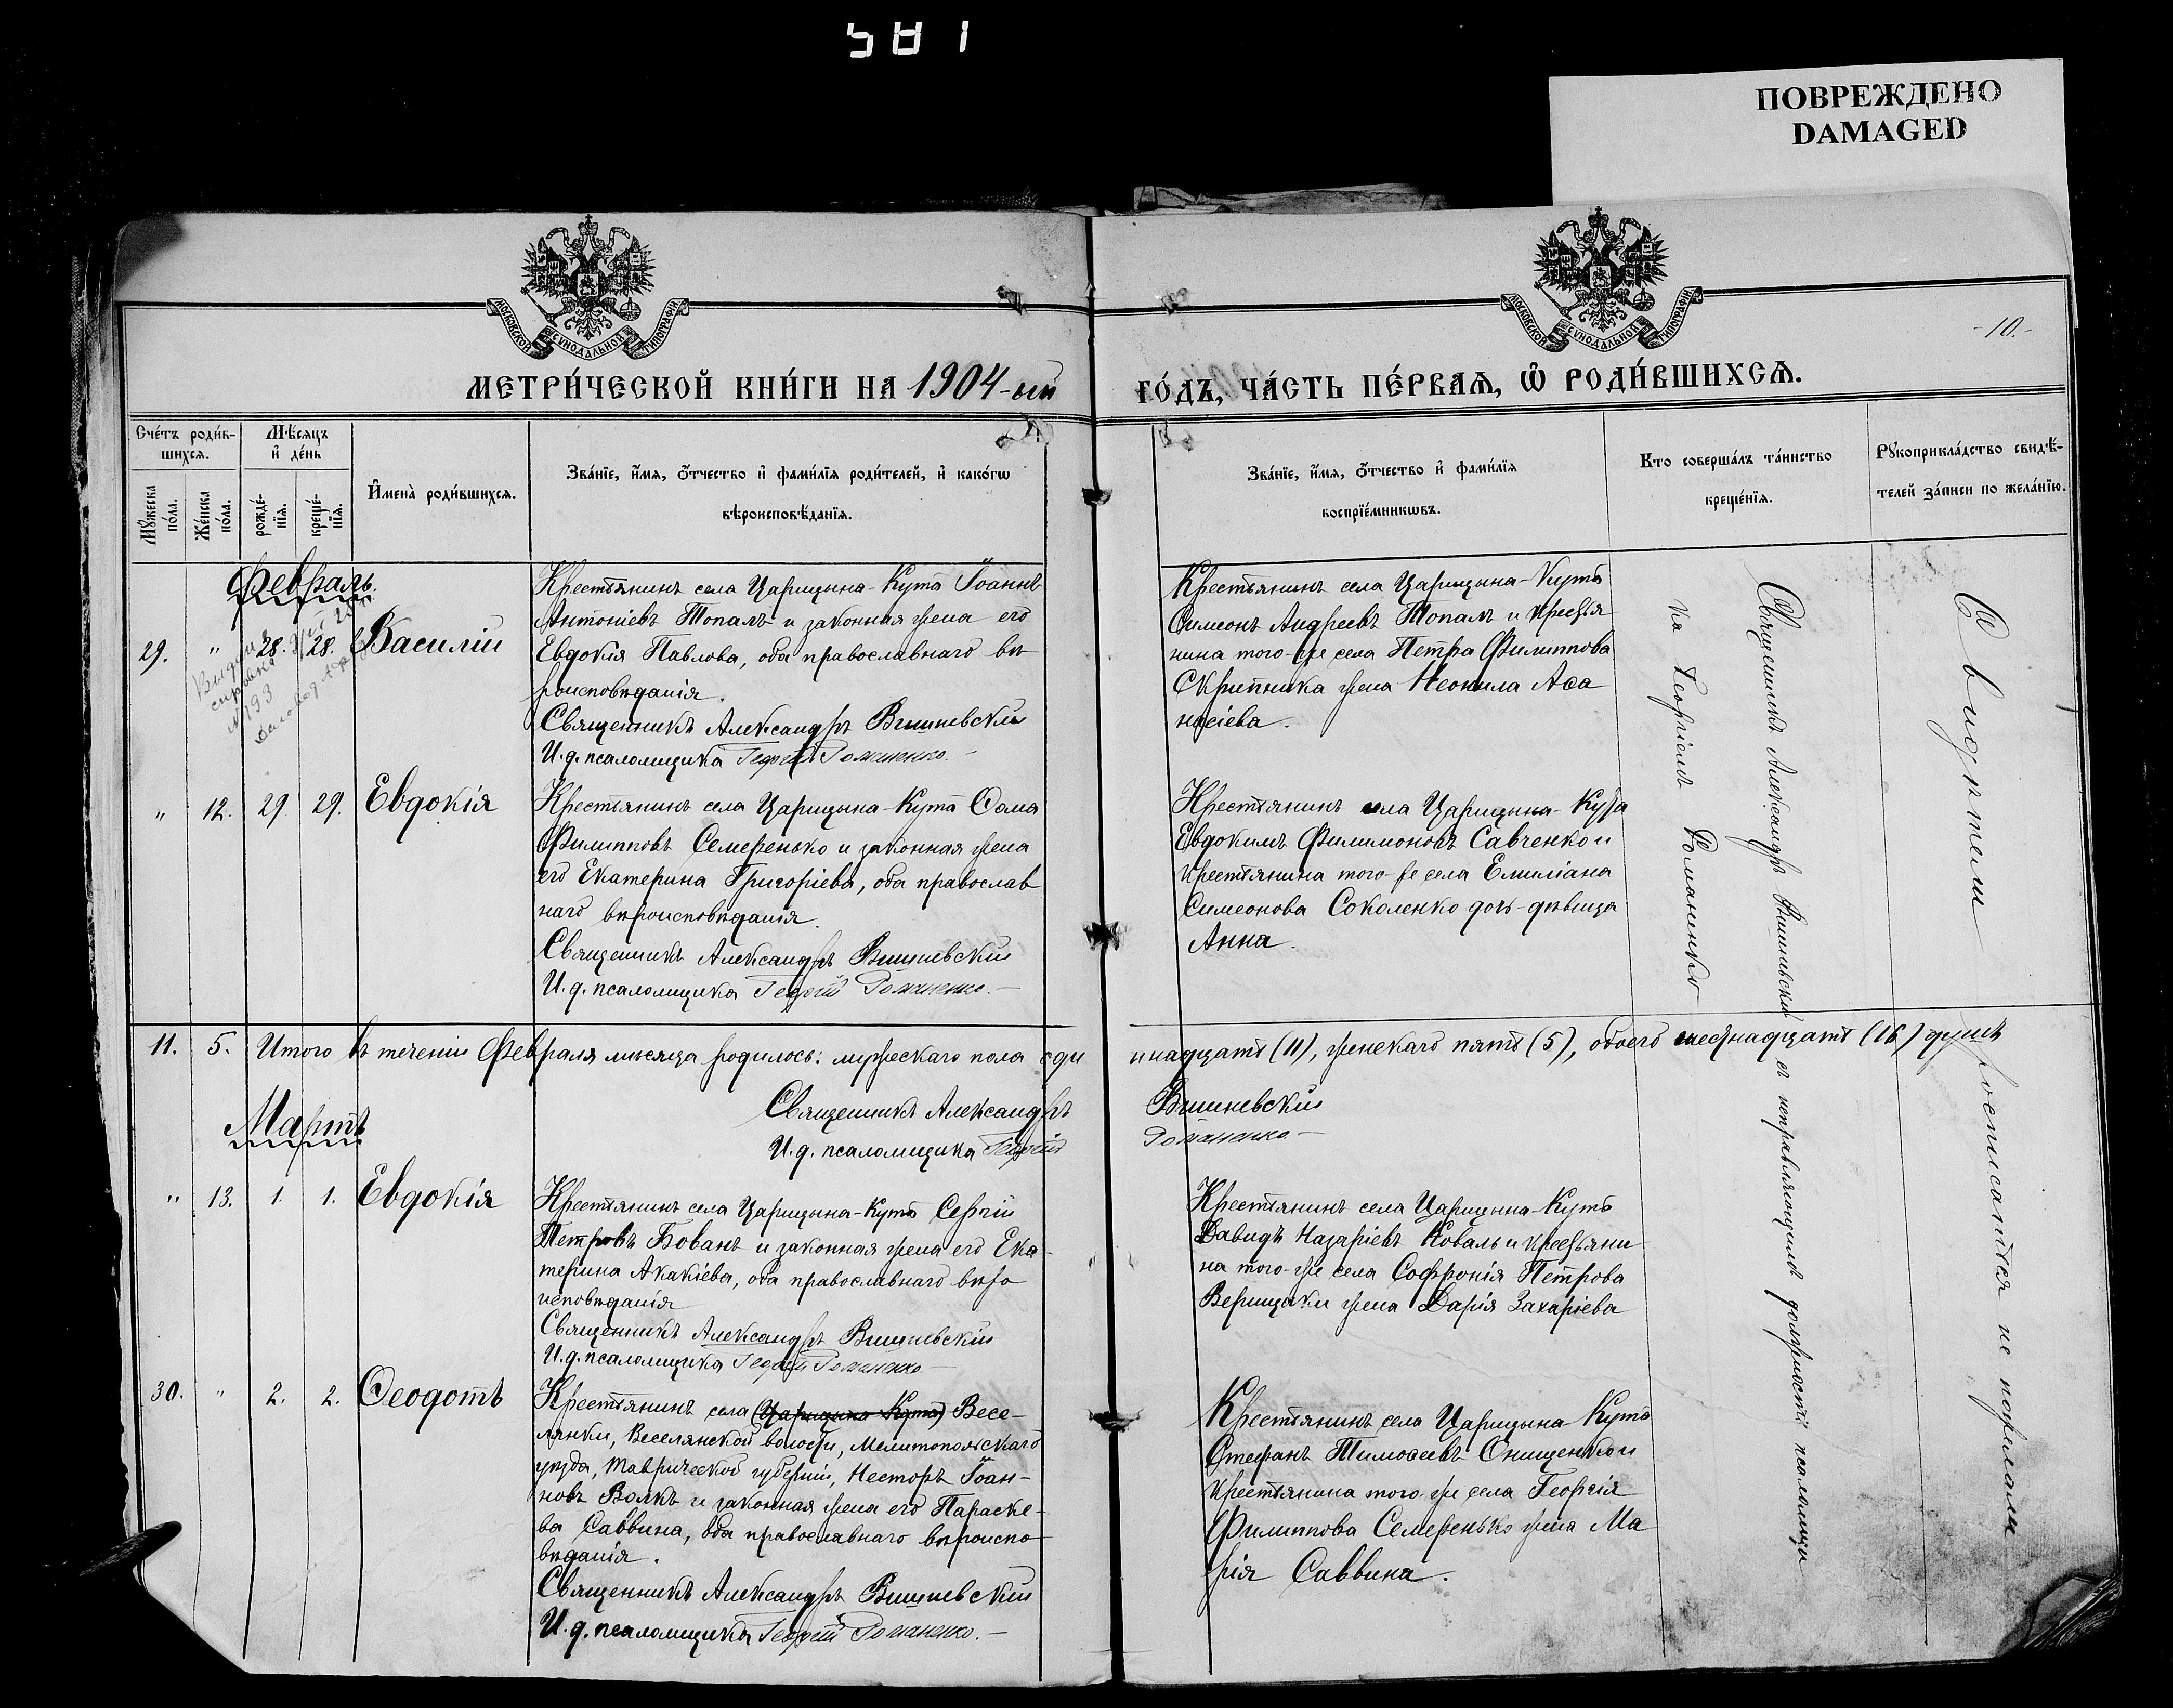 581
ПОВРЕЖДЕНО
DAMAGED
МОСКОВСКОЙ СУНОДАЛЬНОЙ ТИПОГРАФІИ
МОСКОВСКОЙ СУНОДАЛЬНОЙ ТИПОГРАФІИ
-10.-
МЕТРИ́ЧЕСКОЙ КНИ́ГИ НА 1904-ый ГО́ДЪ, ЧА́СТЬ ПЕ́РВАѦ, Ѽ РОДИ́ВШИХСѦ.
Сче́тъ роди́в-
шихсѧ.
Мꙋ́жеска
по́ла.
Же́нска
по́ла.
Мѣ́сѧцъ
и҆ де́нь
рожде́-
нїѧ.
креще́-
нїѧ.
И҆мена̀ роди́вшихсѧ.
Зва́нїе, и҆́мѧ, ѻ҆́тчество и҆ фами́лїѧ роди́телей, и҆ како́гѡ
вѣроисповѣ́данїѧ.
Зва́нїе, и҆́мѧ, ѻ҆́тчество и҆ фами́лїѧ
воспрїе́мникѡвъ.
Кто соверша́лъ та́инство
креще́нїѧ.
Рꙋкоприкла́дство свидѣ́-
телей за́писи по жела́нїю.
Февраль.
29. " 28. 28. Василій
Выдана
справка
№193
Крестьянинъ села Царицына-Кута Іоаннъ
Антоніевъ Топалъ и законная жена его
Евдокія Павлова, оба православнаго вѣ
роисповѣданія.
Священникъ Александръ Вишневскій
И.д. псаломщика Георгій Романенко.-
Крестьянинъ села Царицына-Кута
Симеонъ Андреевъ Топалъ и крестья
нина того-же села Петра Филиппова
Скрипника жена Неонила Аѳа
насіева.
" 12. 29. 29. Евдокія
Крестьянинъ села Царицына-Кута Ѳома
Филипповъ Семеренько и законная жена
его Екатерина Григоріева, оба православ
наго вѣроисповѣданія.
Священникъ Александръ Вишневскій
И.д. псаломщика Георгій Романенко.-
Крестьянинъ села Царицына-Кута
Евдокимъ Филимоновъ Савченко и
крестьянина того-же села Емиліана
Симеонова Соколенко дочь-дѣвица
Анна.
11. 5. Итого въ теченіи Февраля мѣсяца родилось: мужескаго пола оди
ннадцать (11), женскаго пять (5), обоего шестнадцать (16) душъ
Священникъ Александръ Вишневскій
И.д. псаломщика Георгій Романенко.-
Мартъ
" 13. 1. 1. Евдокія
Крестьянинъ села Царицына-Кута Сергій
Петровъ Бованъ и законная жена его Ека-
терина Акакіева, оба православнаго вѣро
исповѣданія
Священникъ Александръ Вишневскій
И.д. псаломщика Георгій Романенко-
Крестьянинъ села Царицына-Кута
Давидъ Назаріевъ Коваль и крестьяни
на того-же села Софронія Петрова
Верещаки жена Дарія Захаріева
30. " 2. 2. Ѳеодотъ
Крестьянинъ села (Царицына-Кута) Весе-
лянки, Веселянской волости, Мелитопольскаго
уѣзда, Таврической губерніи, Несторъ Іоан-
новъ Волкъ и законная жена его Параске-
ва Саввина, оба православнаго вѣроиспо
вѣданія.
Священникъ Александръ Вишневскій
И.д. псаломщика Георгій Романенко.-
Крестьянинъ села Царицына-Кута
Стефанъ Тимоѳеевъ Онищенко и
крестьянина того-же села Георгія
Филиппова Семеренько жена Ма
рія Саввина.
Священникъ Александръ Вишневскій съ исправляющимъ должность псаломщи
ка Георгіемъ Романенко
Свидѣтели росписаться не пожелали